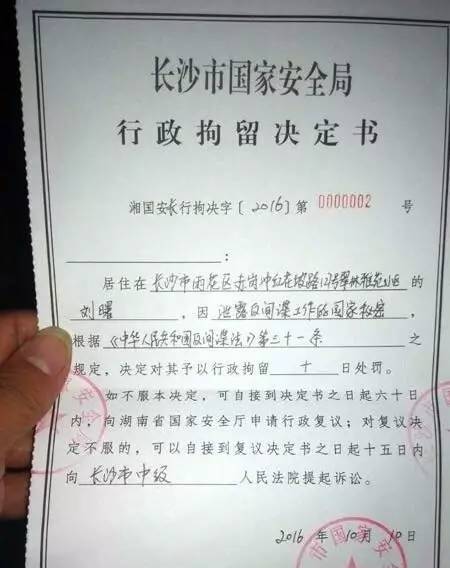 长沙市国家安全局
行政拘留决定书
湘国安长行拘决字〔2016〕第 0000002 号
:
居住在长沙市雨花区赤岗冲红花坡路 号翠林雅苑 的
刘曙 ,因 泄露反间谍工作的国家秘密 ,
根据《中华人民共和国反间谍法》第三十一条 之
规定,决定对其予以行政拘留 十 日处罚。
如不服本决定,可自接到决定书之日起六十日
内,向湖南省国家安全厅申请行政复议;对复议决
定不服的,可以自接到复议决定书之日起十五日内
向 长沙市中级 人民法院提起诉讼。
2016 年 10 月 10 日
市国家安